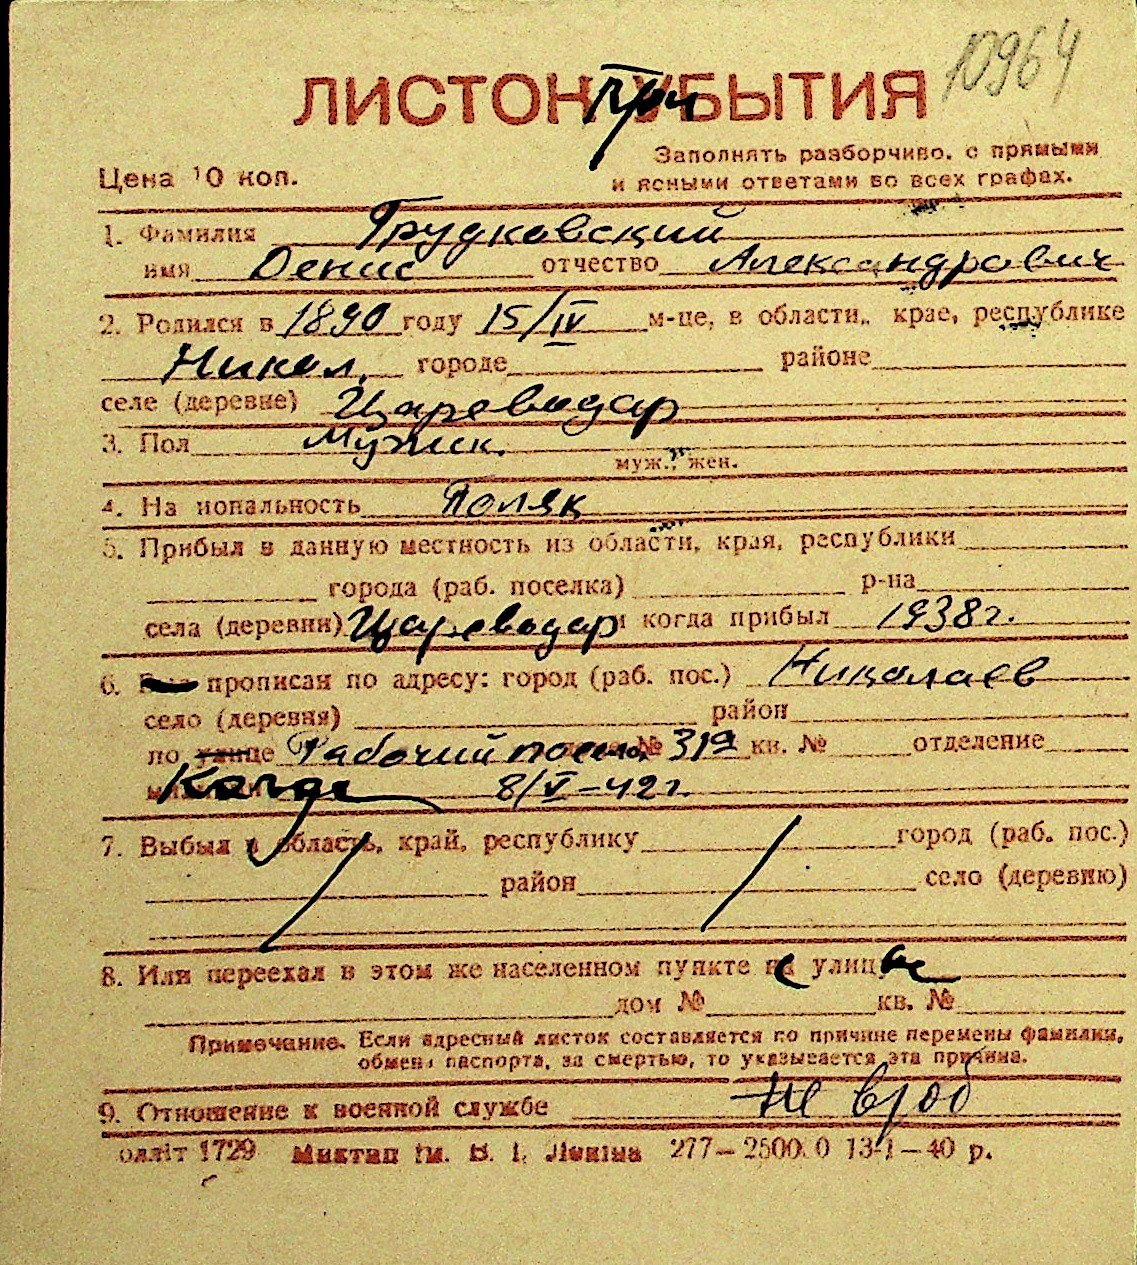 10964
ЛИСТОК При УБЫТИЯ
Заполнять разборчиво, с прямыми
Цена 10 коп. и ясными ответами во всех графах.
1. Фамилия Грудковский
имя Денис отчество Александрович
2. Родился в 1890 году 15/IV м-це, в области, крае, республике
Никол. городе районе
селе (деревне) Цареводар
3. Пол Мужск.
муж., жен.
4. Национальность Поляк
5. Прибыл в данную местность из области, края, республики
города (раб. поселка) р-на
села (деревни) Цареводар и когда прибыл 1938 г.
6. прописан по адресу: город (раб. пос.) Николаев
село (деревня) район
по улице Рабочий поселок № 319 кв. № отделение
Когда 8/V-42 г.
7. Выбыл в область, край, республику город (раб. пос.)
район село (деревню)
8. Или переехал в этом же населенном пункте с улицы
дом № кв. №
Примечание. Если адресный листок составляется по причине перемены фамилии,
обмена паспорта, за смертью, то указывается эта причина.
9. Отношение к военной службе не в/об
олліт 1729 Миктип ім. В. І. Леніна 277—2500.0 13-1—40 р.